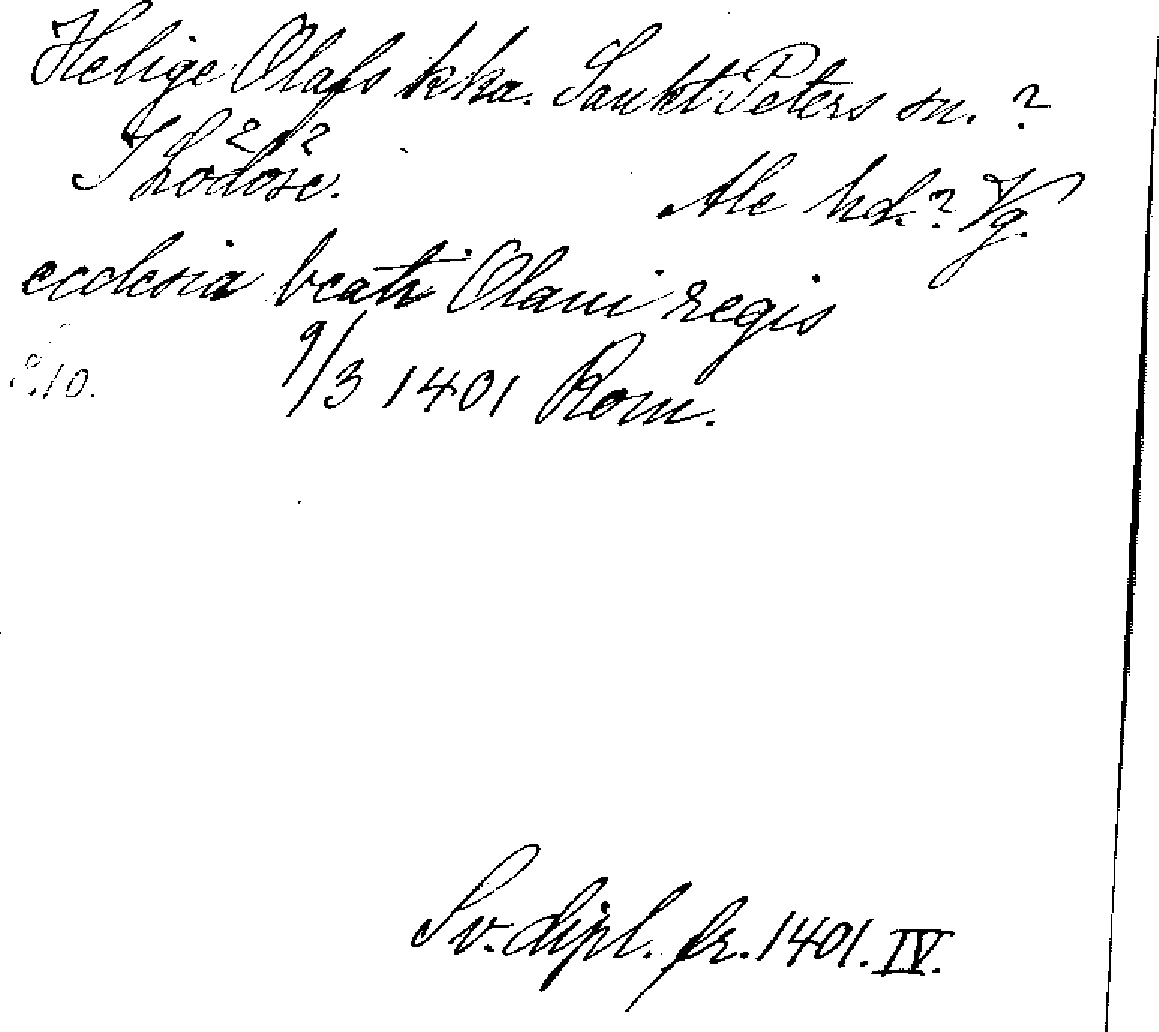 Helige Olafs kka. Sankt Peters sn. ?
I Lödöse.
Ale hd.? Vg.
ecclesia beati Olaui regis
S. 10.
9/3 1401 Rom.
Sv. dipl. fr. 1401. IV.